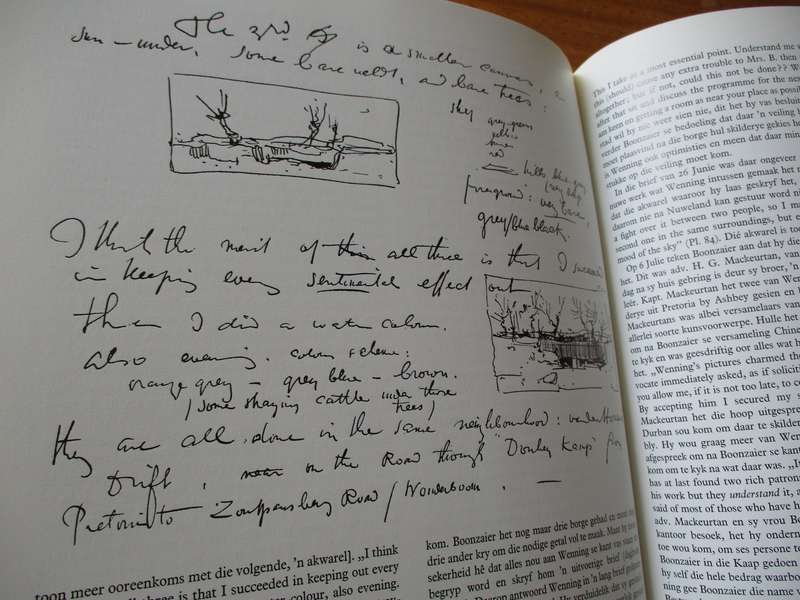 The 3rd is a smaller canvas, a
sun – under, some bare veldt, and bare trees:
sky grey-green
yellow
red
hills blue grey
foreground: very bare,
grey/blue black.
I think the merit of this all three is that I succeed
in keeping every sentimental effect out
then I did a water colour.
also evening. colour scheme:
orange grey – grey blue – brown.
(some straying cattle under those
trees)
they are all done in the same neighbourhood:
Drift, near on the Road through "Donkey Kamp" from
Pretoria to Zoutpansberg Road / Wonderboom. —
toon meer ooreenkoms met die volgende, 'n akwarel]. „I think
is that I succeeded in keeping out every
colour, also evening.
kom. Boonzaier het nog maar drie borge gehad en moet
drie ander kry om die nodige getal vol te maak. Maar hy
sekerheid hê dat alles nou aan Wenning se kant
begryp word en skryf hom 'n uitvoerige brief
Daarop antwoord Wenning in 'n lang brief
This I take as a most essential point. Understand me
this (should) cause any extra trouble to Mrs. B. then
altogether; but if not, could this not be done??
after that sit and discuss the programme for the
keen on getting a room as near your place as
stad wil bly nie, weer sien nie, dit het hy vas
verder Boonzaier se bedoeling dat daar 'n veiling
mees plaasvind na die borge hul skilderye gekies
is Wenning ook optimisties en meen dat daar
stukke op die veiling moet kom.
In die brief van 26 Junie was daar ongeveer
nuwe werk wat Wenning intussen gemaak het
dat die akwarel waaroor hy laas geskryf het,
daarom nie na Nuweland kan gestuur word
a fight over it between two people, so I
second one in the same surroundings, but
mood of the sky" (Pl. 84). Dié akwarel is
Op 6 Julie teken Boonzaier aan dat hy die
het. Dit was adv. H. G. Mackeurtan, van
dag na sy huis gebring is deur sy broer, 'n
leër. Kapt. Mackeurtan het twee van
derye uit Pretoria by Ashbey gesien en
Mackeurtans was albei versamelaars van
allerlei soorte kunsvoorwerpe. Hulle het
om na Boonzaier se versameling
te kyk en was geesdriftig oor alles wat
het. „Wenning's pictures charmed
vocate immediately asked, as if
you allow me, if it is not too late, to
By accepting him I secured my
Mackeurtan het die hoop uitgespreek
Durban sou kom om daar te skilder
bly. Hy wou graag meer van
afgespreek om na Boonzaier se
kom om te kyk na wat daar was. „I
has at last found two rich patrons
his work but they understand it,
said of most of those who have
adv. Mackeurtan en sy vrou
kantoor besoek, het hy
toe wou kom, om ses persone
Boonzaier in die Kaap gedoen
hy self die hele bedrag
ning gee Boonzaier die name